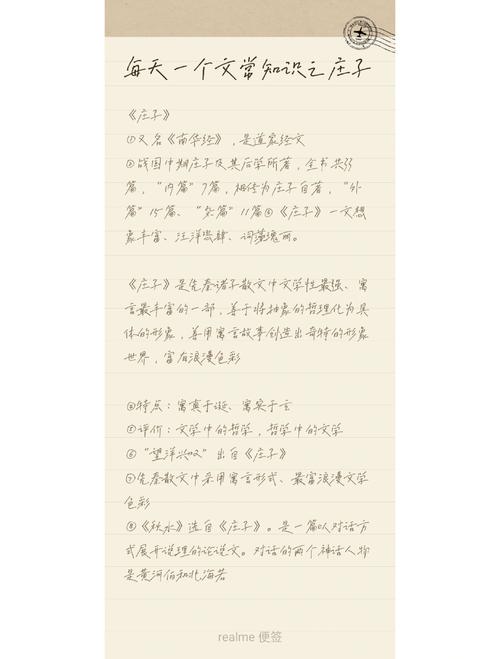 每天一个文常知识之庄子
《庄子》
①又名《南华经》，是道家经文
②战国中期庄子及其后学所著，全书共33
篇，“内篇”7篇，相传为庄子自著，“外
篇”15篇、“杂篇”11篇③《庄子》一文想
象丰富、汪洋恣肆、词藻瑰丽。
《庄子》是先秦诸子散文中文学性最强、寓
言最丰富的一部，善于将抽象的哲理化为具
体的形象，善用寓言故事创造出奇特的形象
世界，富有浪漫色彩
④特点：寓真于诞、寓实于玄
⑤评价：文学中的哲学，哲学中的文学
⑥“望洋兴叹”出自《庄子》
⑦先秦散文中采用寓言形式、最富浪漫文学
色彩
⑧《秋水》选自《庄子》。是一篇以对话方
式展开说理的论说文。对话的两个神话人物
是黄河伯和北海若
realme 便签